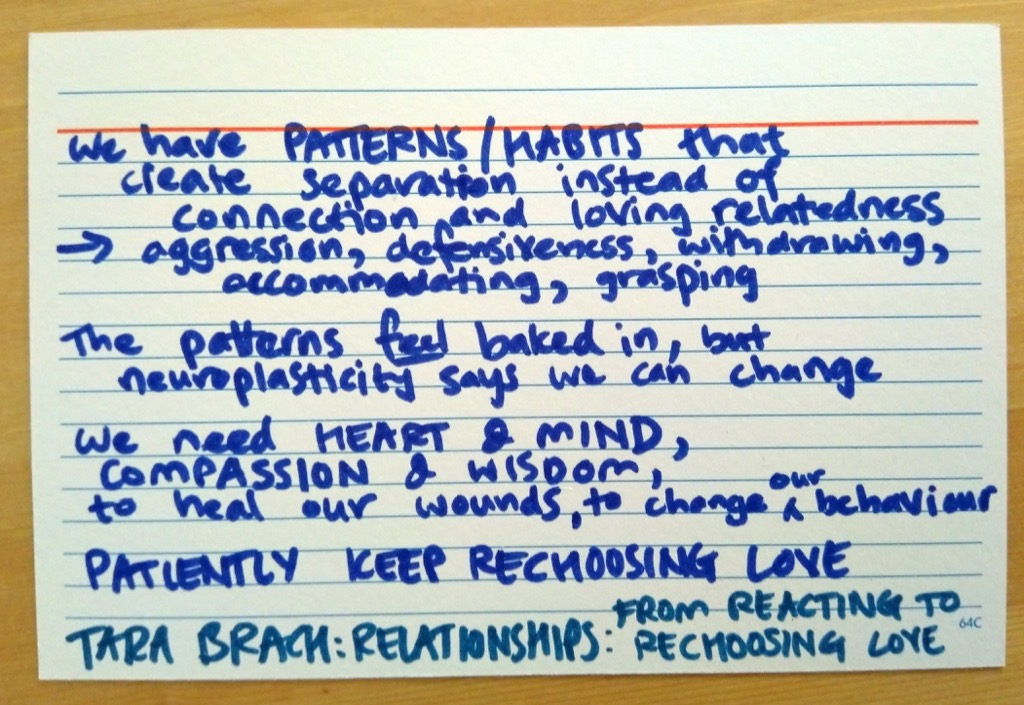 We have PATTERNS/HABITS that
create separation instead of
connection and loving relatedness
→ aggression, defensiveness, withdrawing,
accommodating, grasping
The patterns feel baked in, but
neuroplasticity says we can change
We need HEART & MIND,
COMPASSION & WISDOM,
to heal our wounds, to change our behaviour
PATIENTLY KEEP RECHOOSING LOVE
TARA BRACH: RELATIONSHIPS: FROM REACTING TO
RECHOOSING LOVE
64C